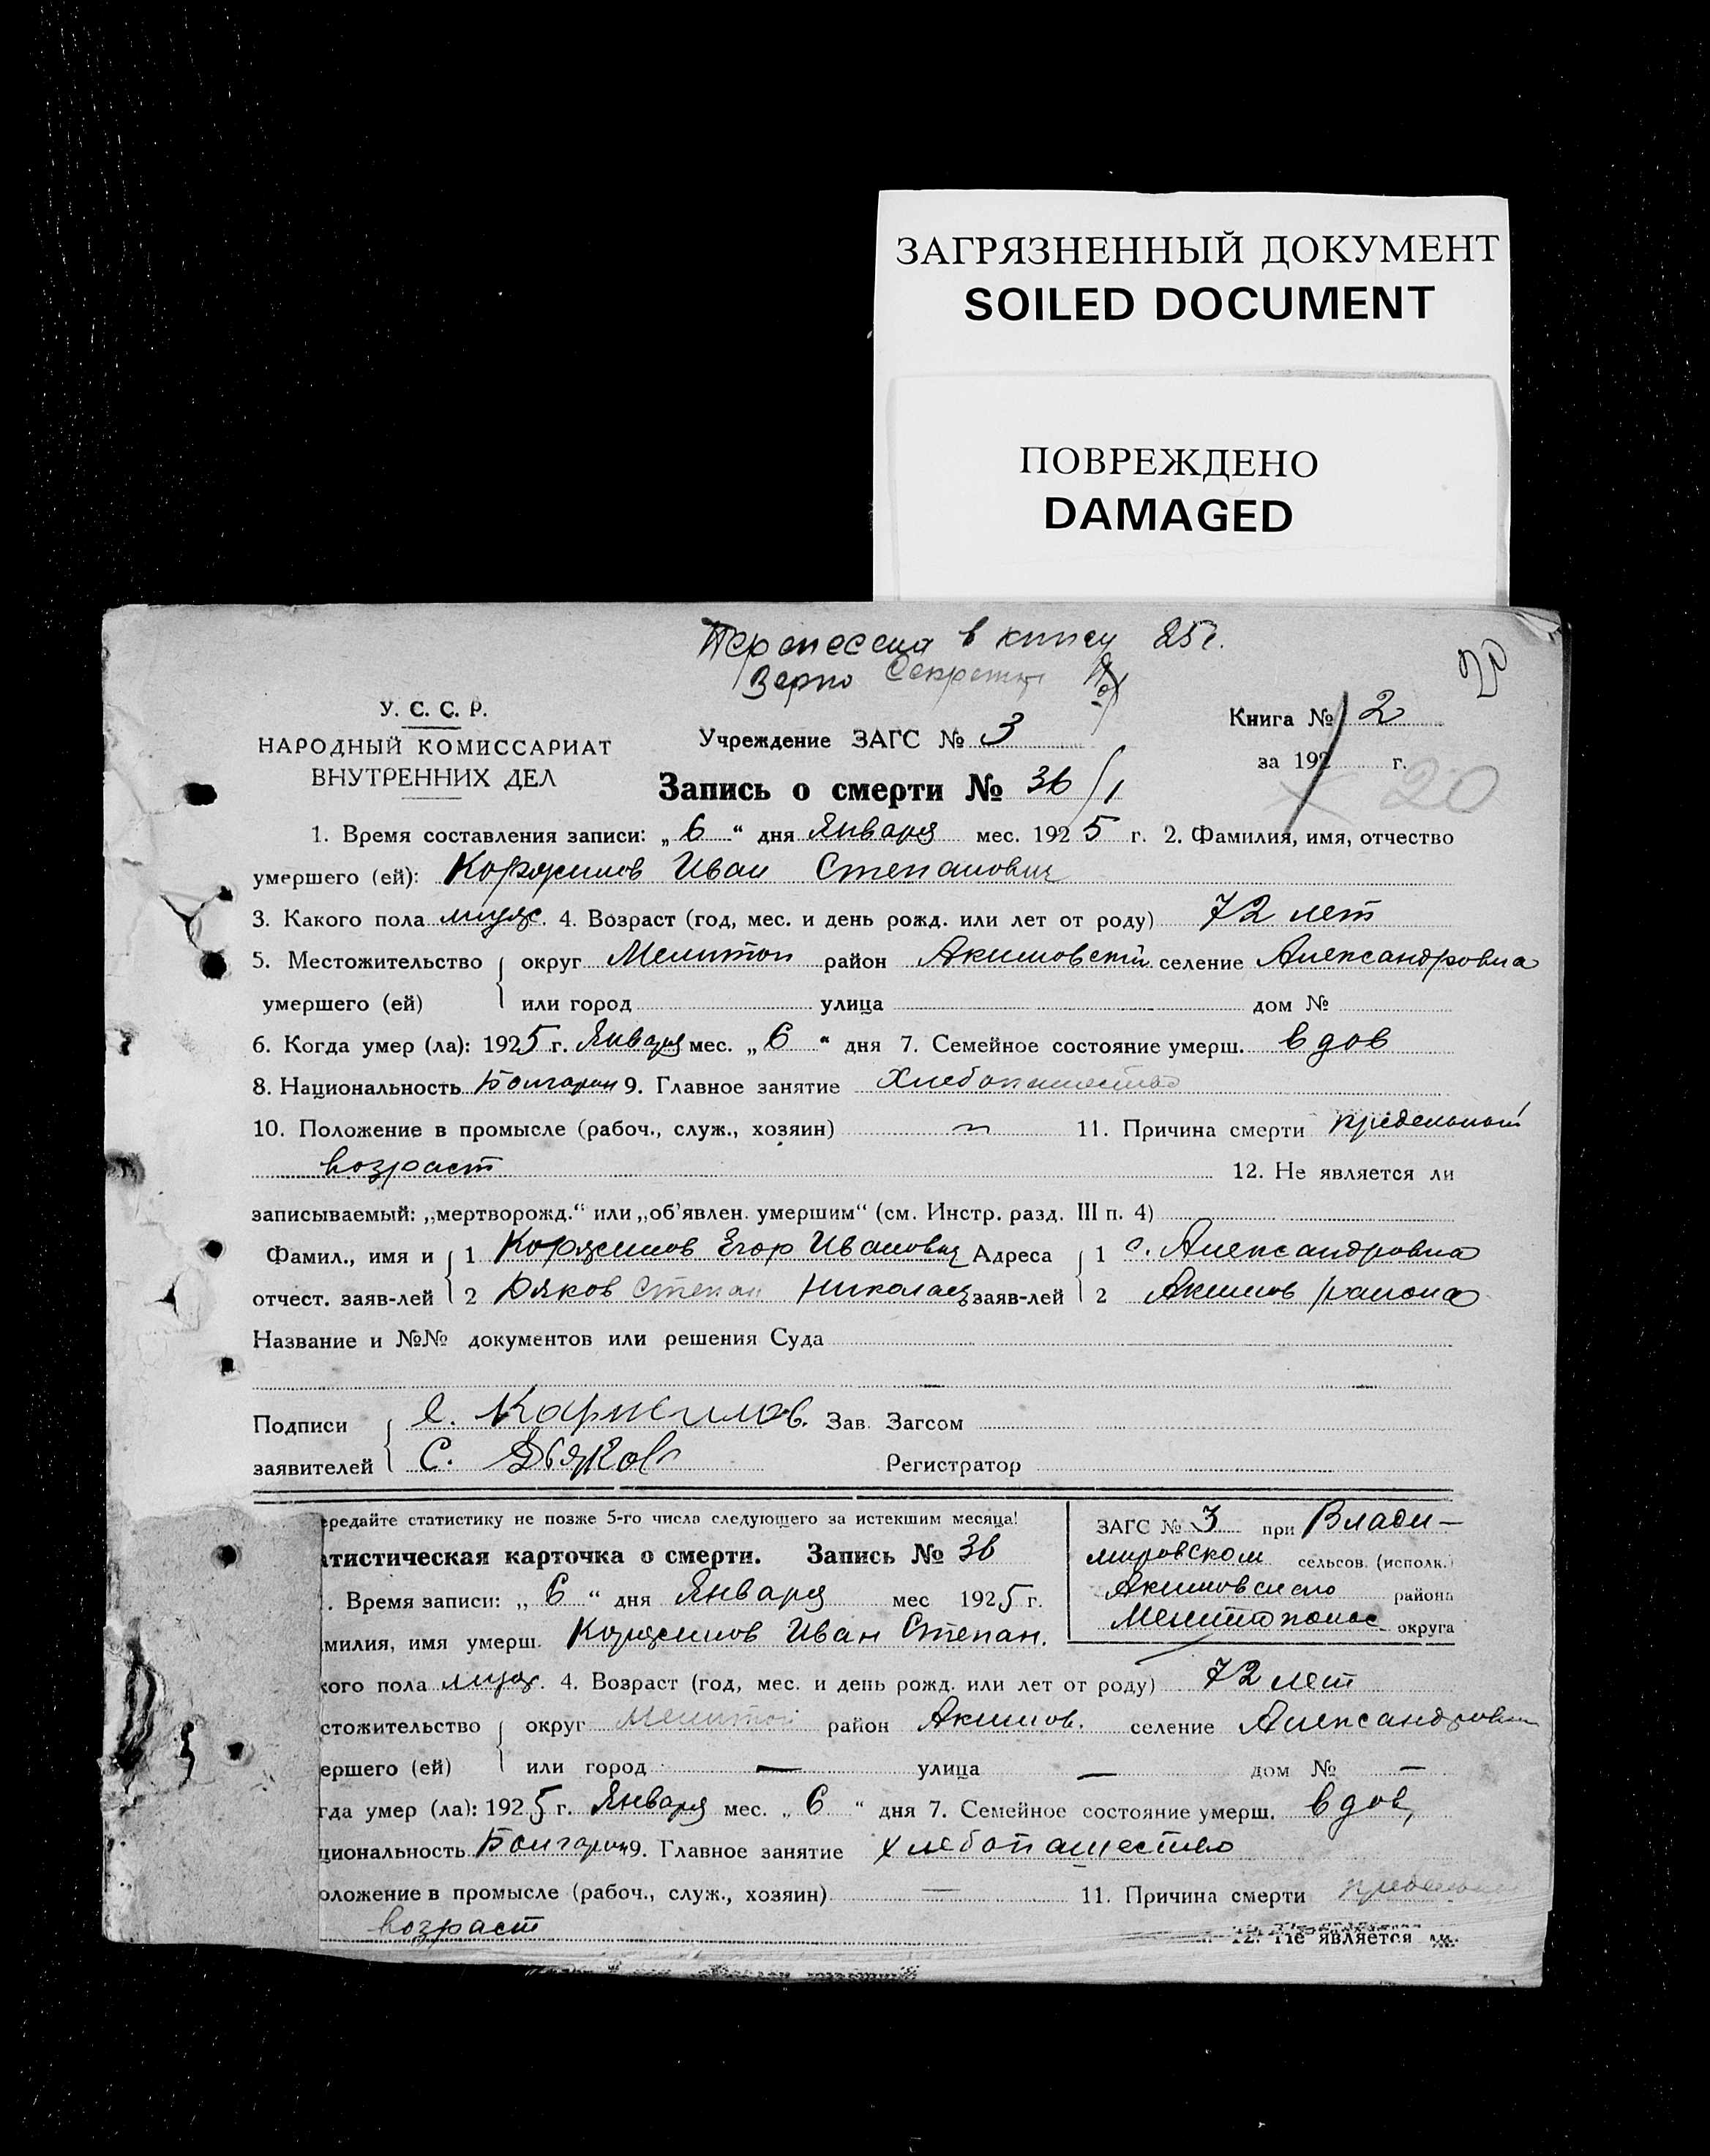 ЗАГРЯЗНЕННЫЙ ДОКУМЕНТ
SOILED DOCUMENT
ПОВРЕЖДЕНО
DAMAGED
в книгу 25 г.
Верно Секретарь
20
У. С. С. Р.
НАРОДНЫЙ КОМИССАРИАТ
ВНУТРЕННИХ ДЕЛ
Учреждение ЗАГС № 3
Книга № 2
за 192 г.
20
Запись о смерти № 36/1
1. Время составления записи: „ 6 “ дня Января мес. 1925 г. 2. Фамилия, имя, отчество
умершего (ей): Коржилов Иван Степанович
3. Какого пола мужс. 4. Возраст (год, мес. и день рожд. или лет от роду) 72 лет
5. Местожительство округ Мелитоп район Акимовский селение Александровка
умершего (ей) или город улица дом №
6. Когда умер (ла): 1925 г. Января мес. „ 6 “ дня 7. Семейное состояние умерш. вдов
8. Национальность Болгарин 9. Главное занятие Хлебопашество
10. Положение в промысле (рабоч., служ., хозяин) 11. Причина смерти предельный
возраст 12. Не является ли
записываемый: „мертворожд.“ или „об’явлен. умершим“ (см. Инстр. разд. III п. 4)
Фамил., имя и 1 Коржилов Егор Иванович Адреса 1 с. Александровка
отчест. заяв-лей 2 Дяков Степан Николаев заяв-лей 2 Акимов района
Название и №№ документов или решения Суда
Подписи Е. Каржилов. Зав. Загсом
заявителей С. Дьяков Регистратор
ередайте статистику не позже 5-го числа следующего за истекшим месяца!
атистическая карточка о смерти. Запись № 36
ЗАГС № 3 при Влади-
мировском сельсов. (исполк.)
Акимовского района
Мелитопольс округа
. Время записи: „ 6 “ дня Января мес 1925 г.
милия, имя умерш. Коржилов Иван Степан.
кого пола мужс. 4. Возраст (год, мес. и день рожд. или лет от роду) 72 лет
стожительство округ Мелитоп район Акимов. селение Александровка
ершего (ей) или город — улица — дом № —
гда умер (ла): 1925 г. Января мес. „ 6 “ дня 7. Семейное состояние умерш. вдов
циональность Болгарин 9. Главное занятие хлебопашество
оложение в промысле (рабоч., служ., хозяин) — 11. Причина смерти предельный
возраст
12. Не является ли